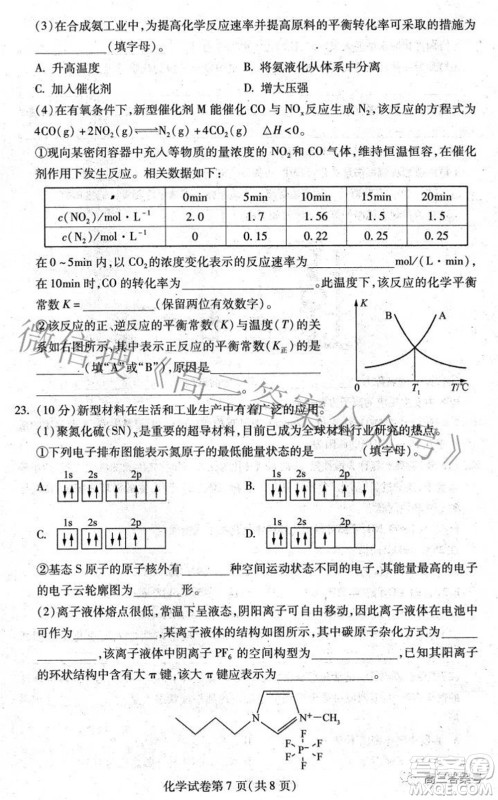 (3)在合成氨工业中,为提高化学反应速率并提高原料的平衡转化率可采取的措施为
________(填字母)。
A. 升高温度 B. 将氨液化从体系中分离
C. 加入催化剂 D. 增大压强
(4)在有氧条件下,新型催化剂 M 能催化 CO 与 NOₓ反应生成 N₂,该反应的方程式为
4CO(g)+2NO₂(g)⇌N₂(g)+4CO₂(g) △H<0。
①现向某密闭容器中充入等物质的量浓度的 NO₂和 CO 气体,维持恒温恒容,在催化
剂作用下发生反应。相关数据如下:
0min 5min 10min 15min 20min
c(NO₂)/mol·L⁻¹ 2.0 1.7 1.56 1.5 1.5
c(N₂)/mol·L⁻¹ 0 0.15 0.22 0.25 0.25
在 0~5min 内,以 CO₂的浓度变化表示的反应速率为________mol/(L·min),
在 10min 时,CO 的转化率为________。此温度下,该反应的化学平衡
常数 K=________(保留两位有效数字)。
②该反应的正、逆反应的平衡常数(K)与温度(T)的关
系如右图所示,其中表示正反应的平衡常数(K正)的是
________(填“A”或“B”),原因是________
________。
K
B A
0 T₁ T/℃
23. (10 分)新型材料在生活和工业生产中有着广泛的应用。
(1)聚氮化硫(SN)ₓ是重要的超导材料,目前已成为全球材料行业研究的热点。
①下列电子排布图能表示氮原子的最低能量状态的是________(填字母)。
A. 1s 2s 2p B. 1s 2s 2p
C. 1s 2s 2p D. 1s 2s 2p
②基态 S 原子的原子核外有________种空间运动状态不同的电子,其能量最高的电子
的电子云轮廓图为________形。
(2)离子液体熔点很低,常温下呈液态,阴阳离子可自由移动,因此离子液体在电池中
可作为________,某离子液体的结构如图所示,其中碳原子杂化方式为________
________,该离子液体中阴离子 PF₆⁻的空间构型为________,已知其阳离子
的环状结构中含有大 π 键,该大 π 键应表示为________。
N N⁺ CH₃
F
F F
P⁻
F F
F
化学试卷第 7 页(共 8 页)
微信搜《高三答案公众号》
高三答案号